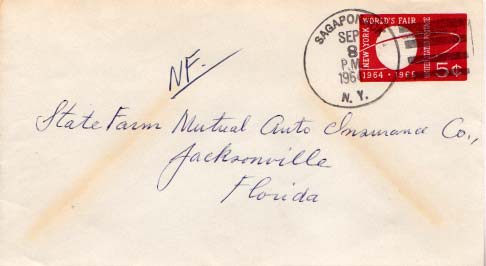 SAGAPON
SEP
8
P.M.
1964
N. Y.
NEW YORK WORLD'S FAIR
1964 - 1965
UNITED STATES POSTAGE
5¢
NF.
State Farm Mutual Auto Insurance Co.,
Jacksonville
Florida